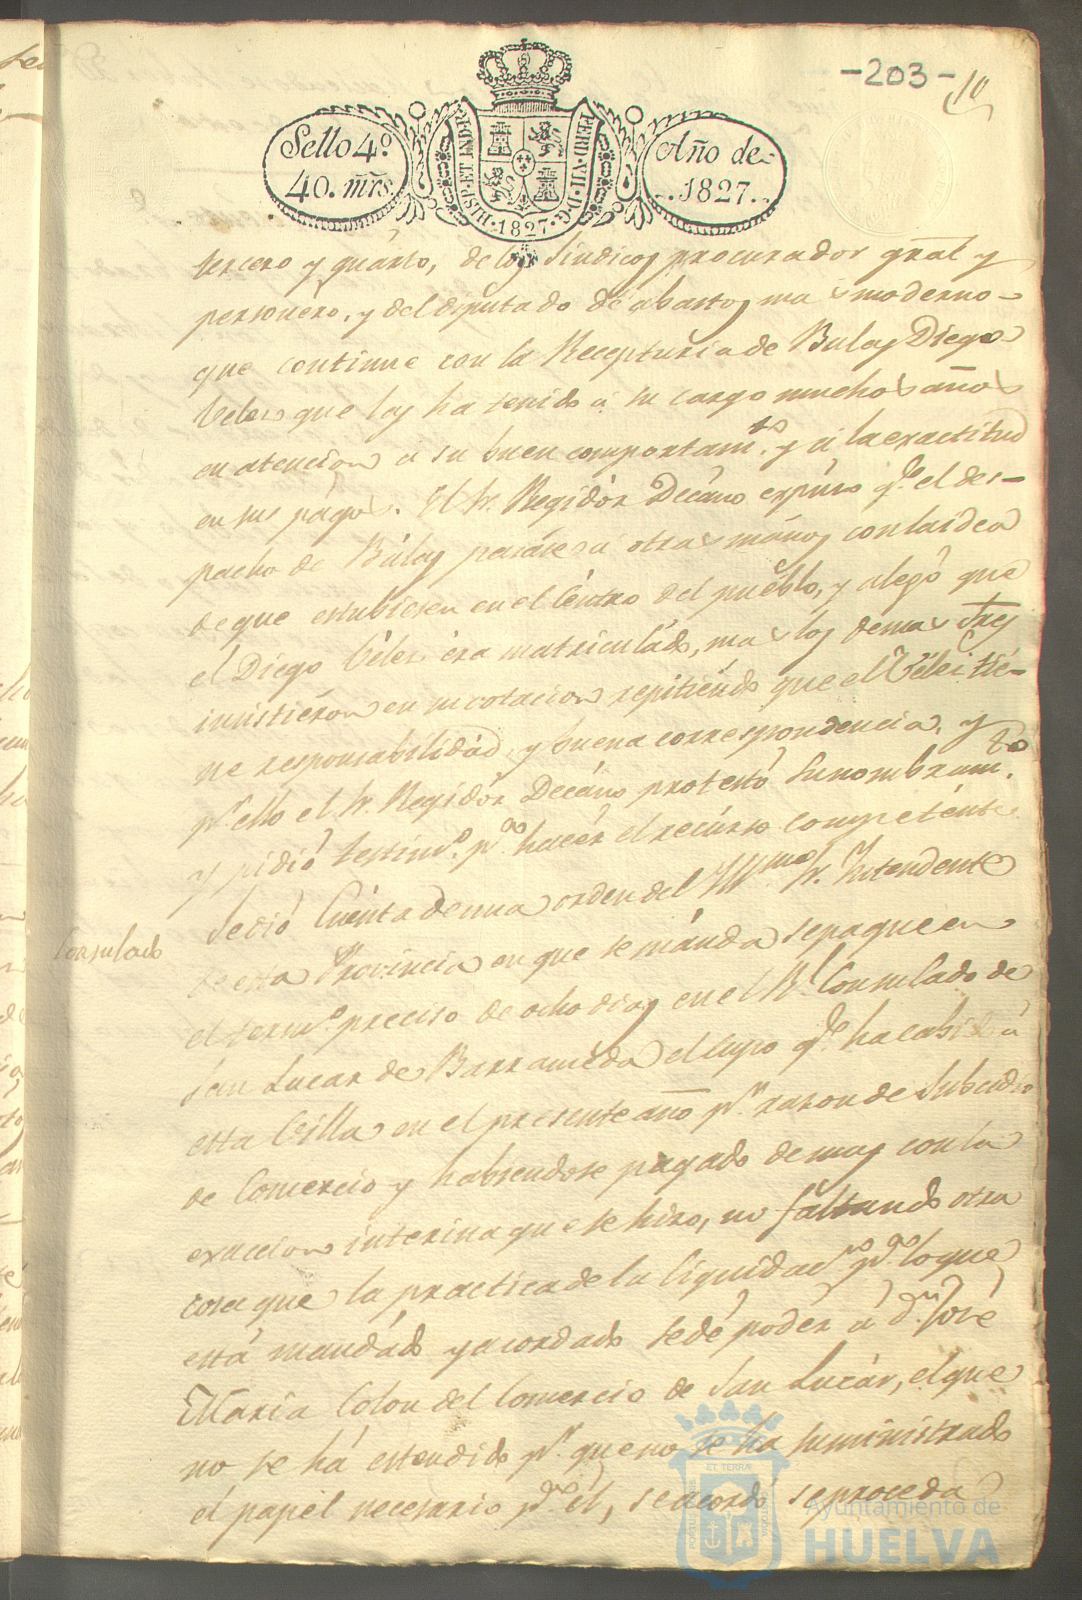 -203-
10
Sello 4º
40. mrs.
HISP. ET IND. R.
1827
FERD. VII. D. G.
Año de
1827.
tercero y quarto, de los Sindicos procurador gral y
personero, y del diputado de abastos mas moderno
que continue con la Recepturia de Bulas Diego
Velez que las ha tenido a su cargo muchos años
en atencion a su buen comportamto. y a la exactitud
en sus pagos. El Sr. Regidor Decano expuso qe. el des-
pacho de Bulas pasase a otras manos con la idea
de que estubiesen en el Centro del pueblo, y alegó que
el Diego Velez era matriculado, mas los demas Sres
insistieron en su votacion repitiendo que el Velez tie-
ne responsabilidad, y buena correspondencia, y
pr. ello el Sr. Regidor Decano protestó su nombramto.
y pidió testimo. pa. hacer el recurso competente
Consulado
Se dió Cuenta de una orden del Yllmo Sr. Intendente
de esta Provincia en que se manda se pague en
el termo. preciso de ocho dias en el Rl. Consulado de
San Lucar de Barrameda el cupo qe. ha cabido á
esta Villa en el presente año pr. razon de Subcidio
de Comercio y habiendose pagado de mas con la
exaccion interina que se hizo, no faltando otra
cosa que la practica de la liquidacon. pa. lo que
está mandado y acordado se dé poder á dn. José
Maria Colon del Comercio de San Lucar, el que
no se há estendido pr. que no se ha suministrado
el papel necesario pa. él, se acordó se proceda
ET TERRÆ
Ayuntamiento de
HUELVA